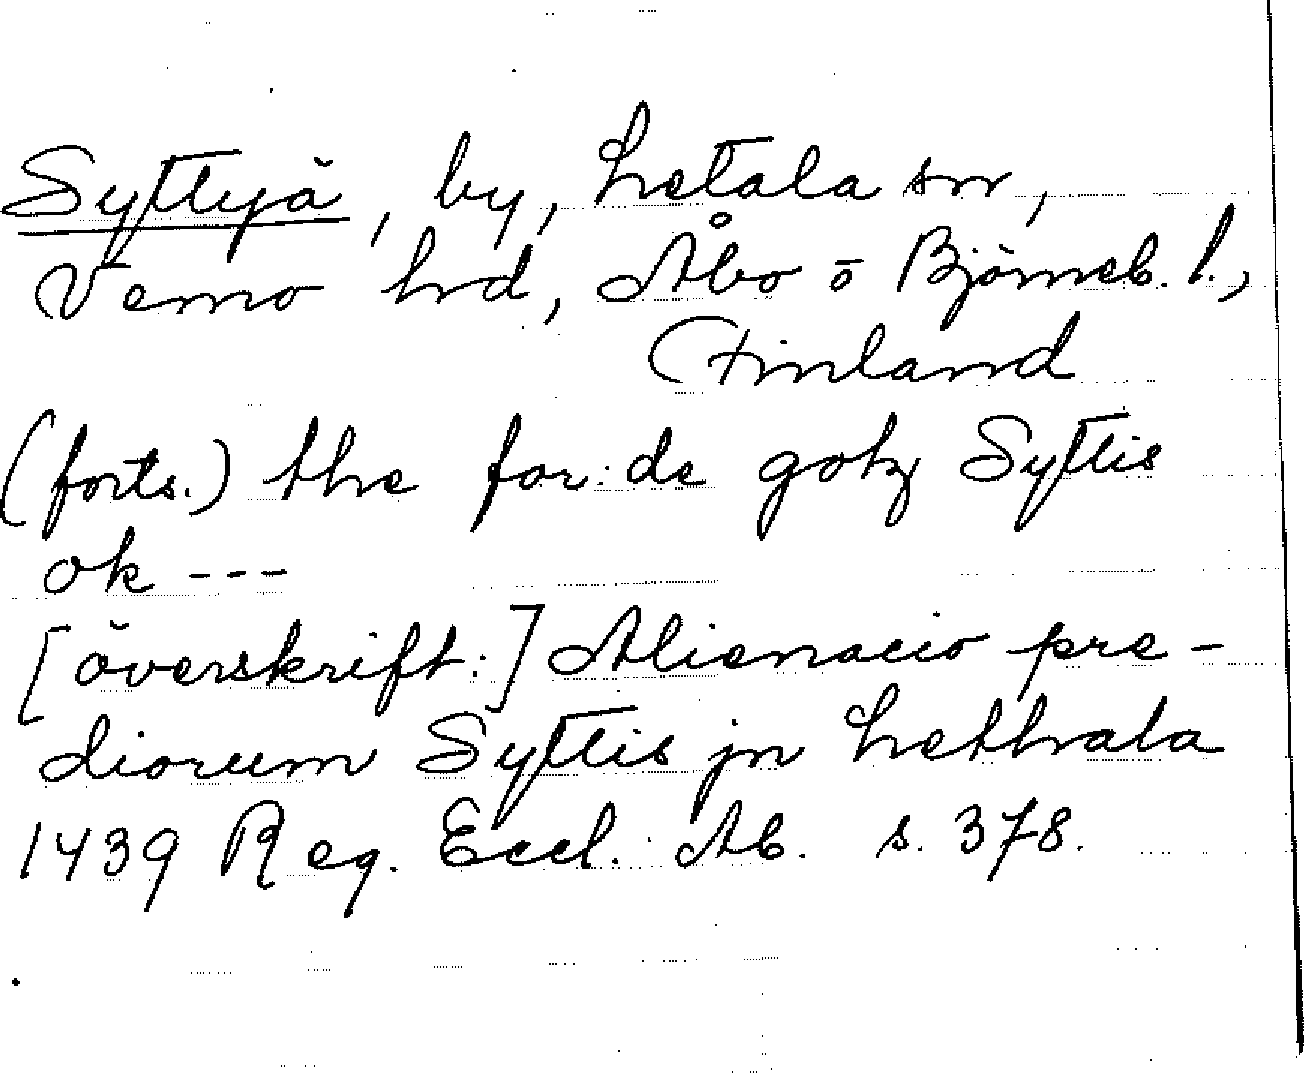 Syttyä, by, Letala sn,
Vemo hrd, Åbo o Björneb. l.,
Finland
(forts.) the for:de gotz Syttis
ok ---
[överskrift:] Alienacio pre-
diorum Syttis jn Lethala
1439 Reg. Eccl. Ab. s. 378.